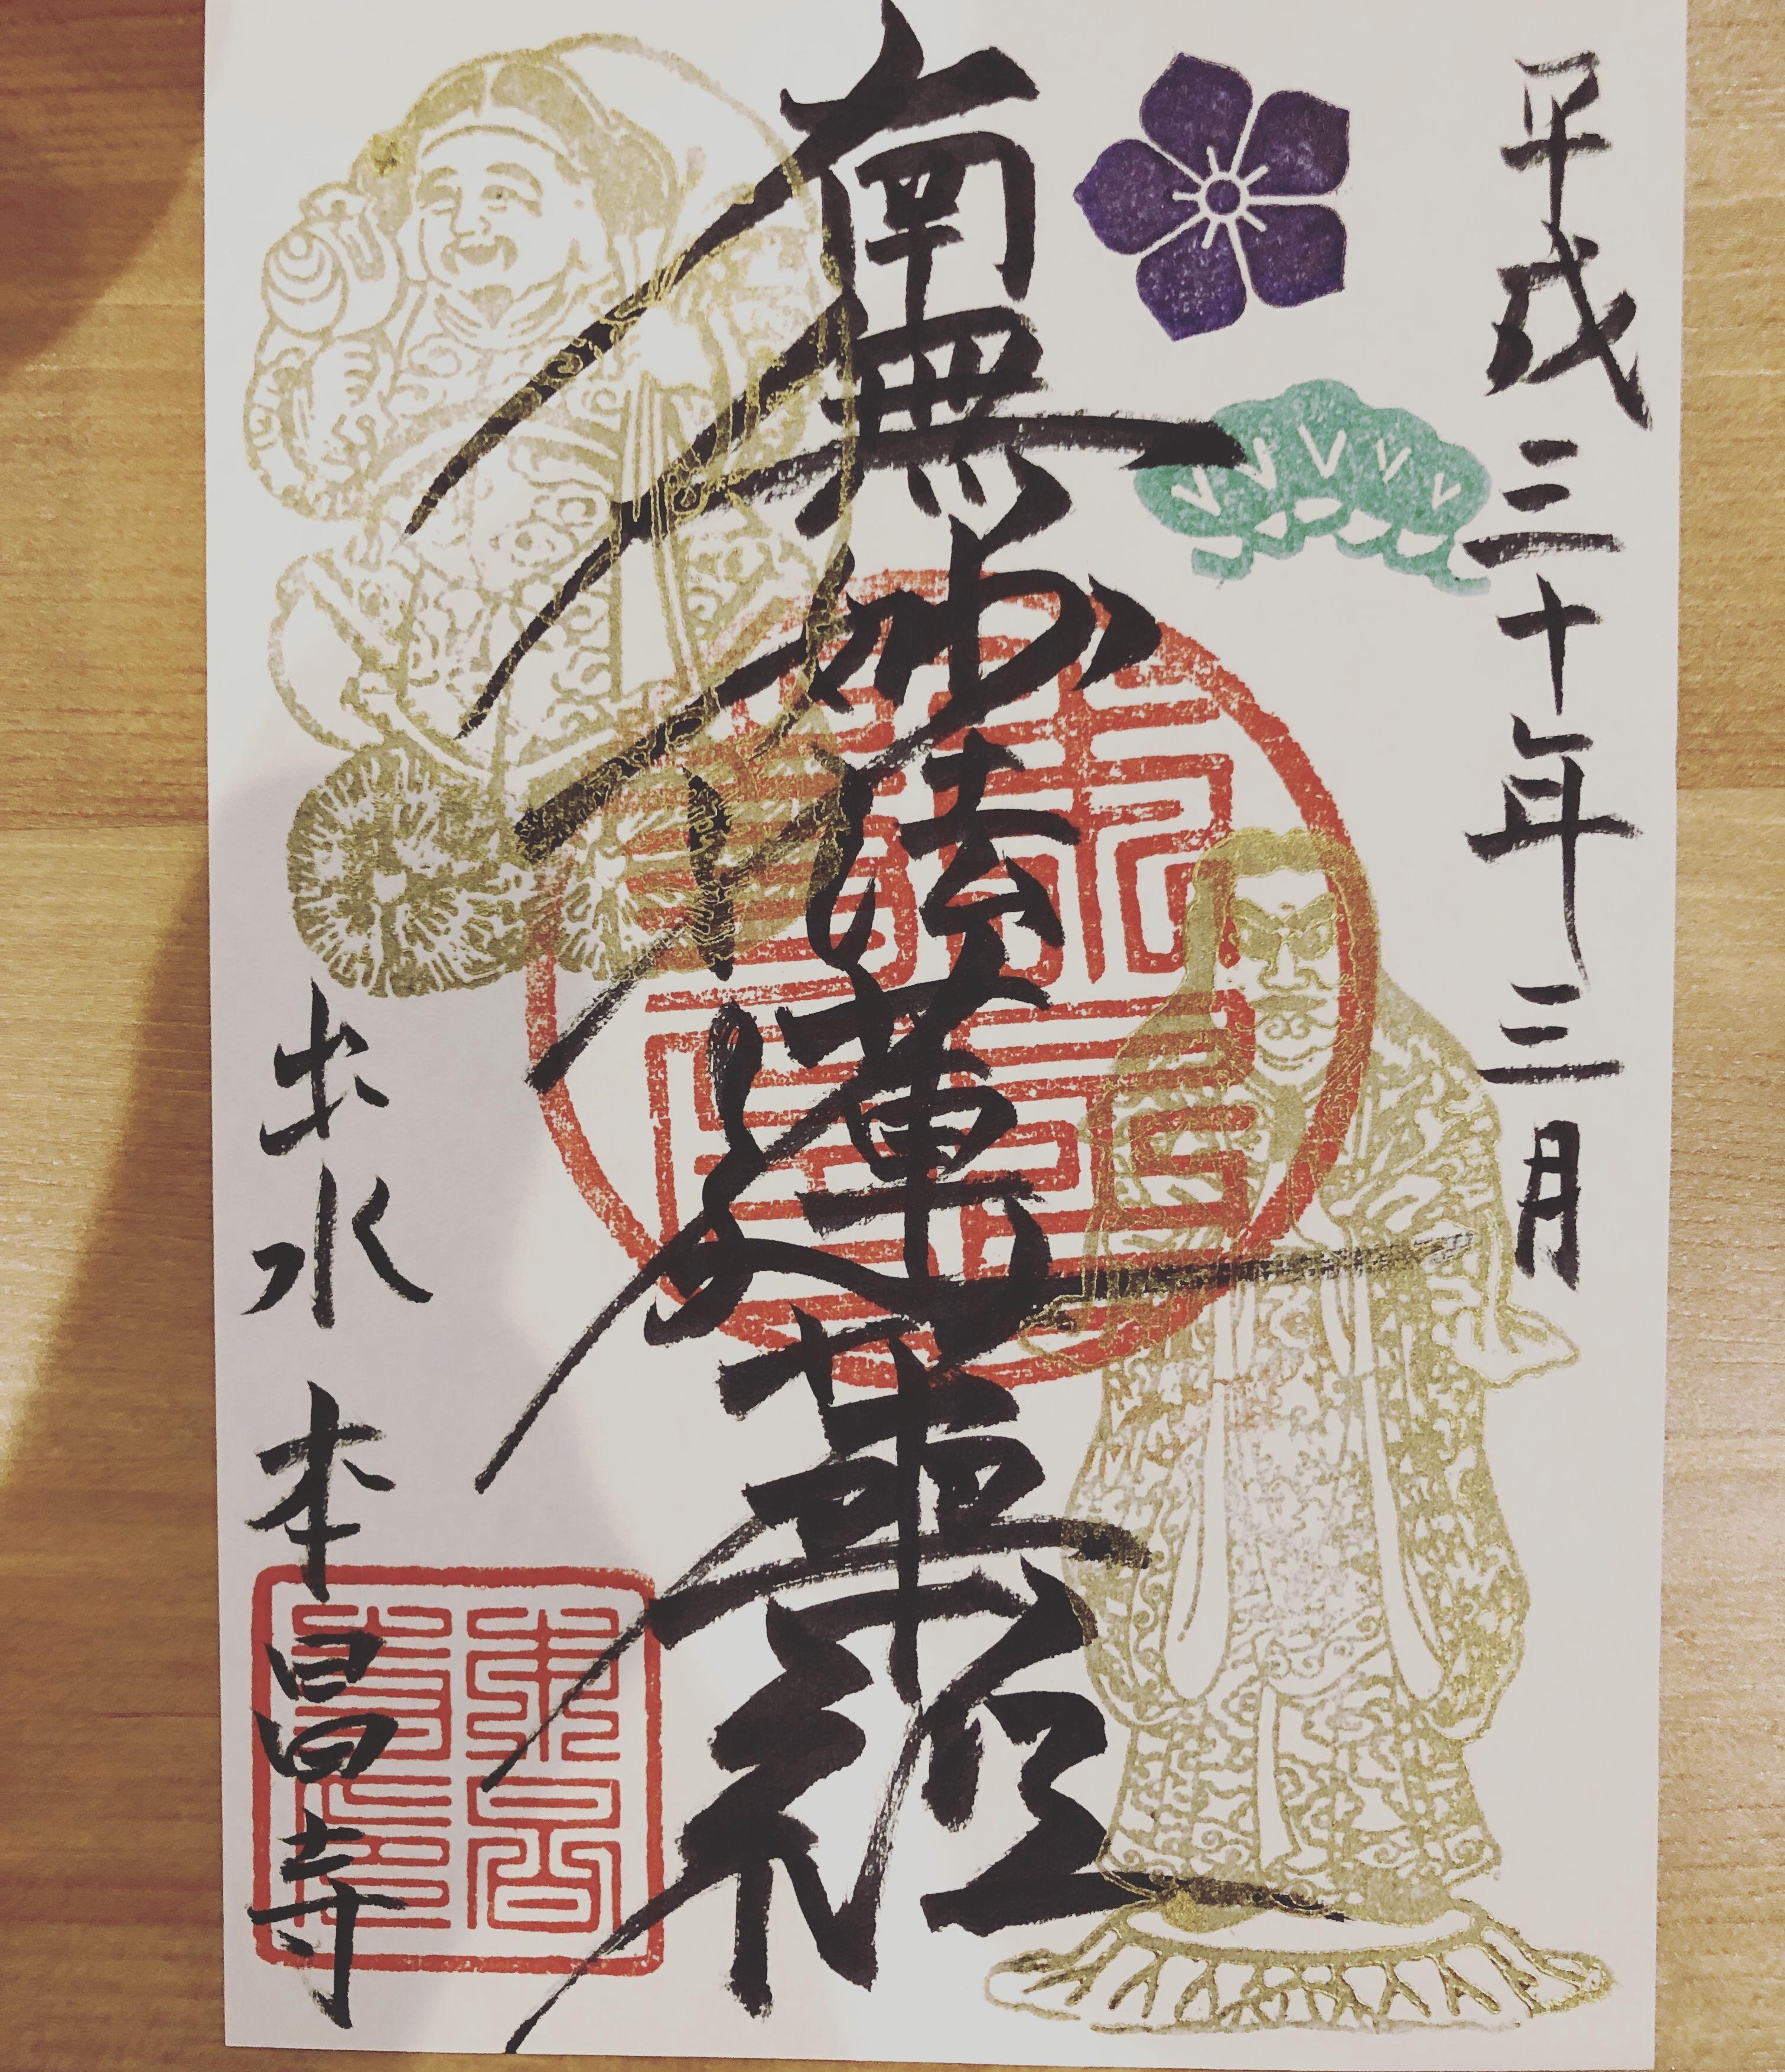 平成三十年三月
南無妙法蓮華経
出水 本昌寺